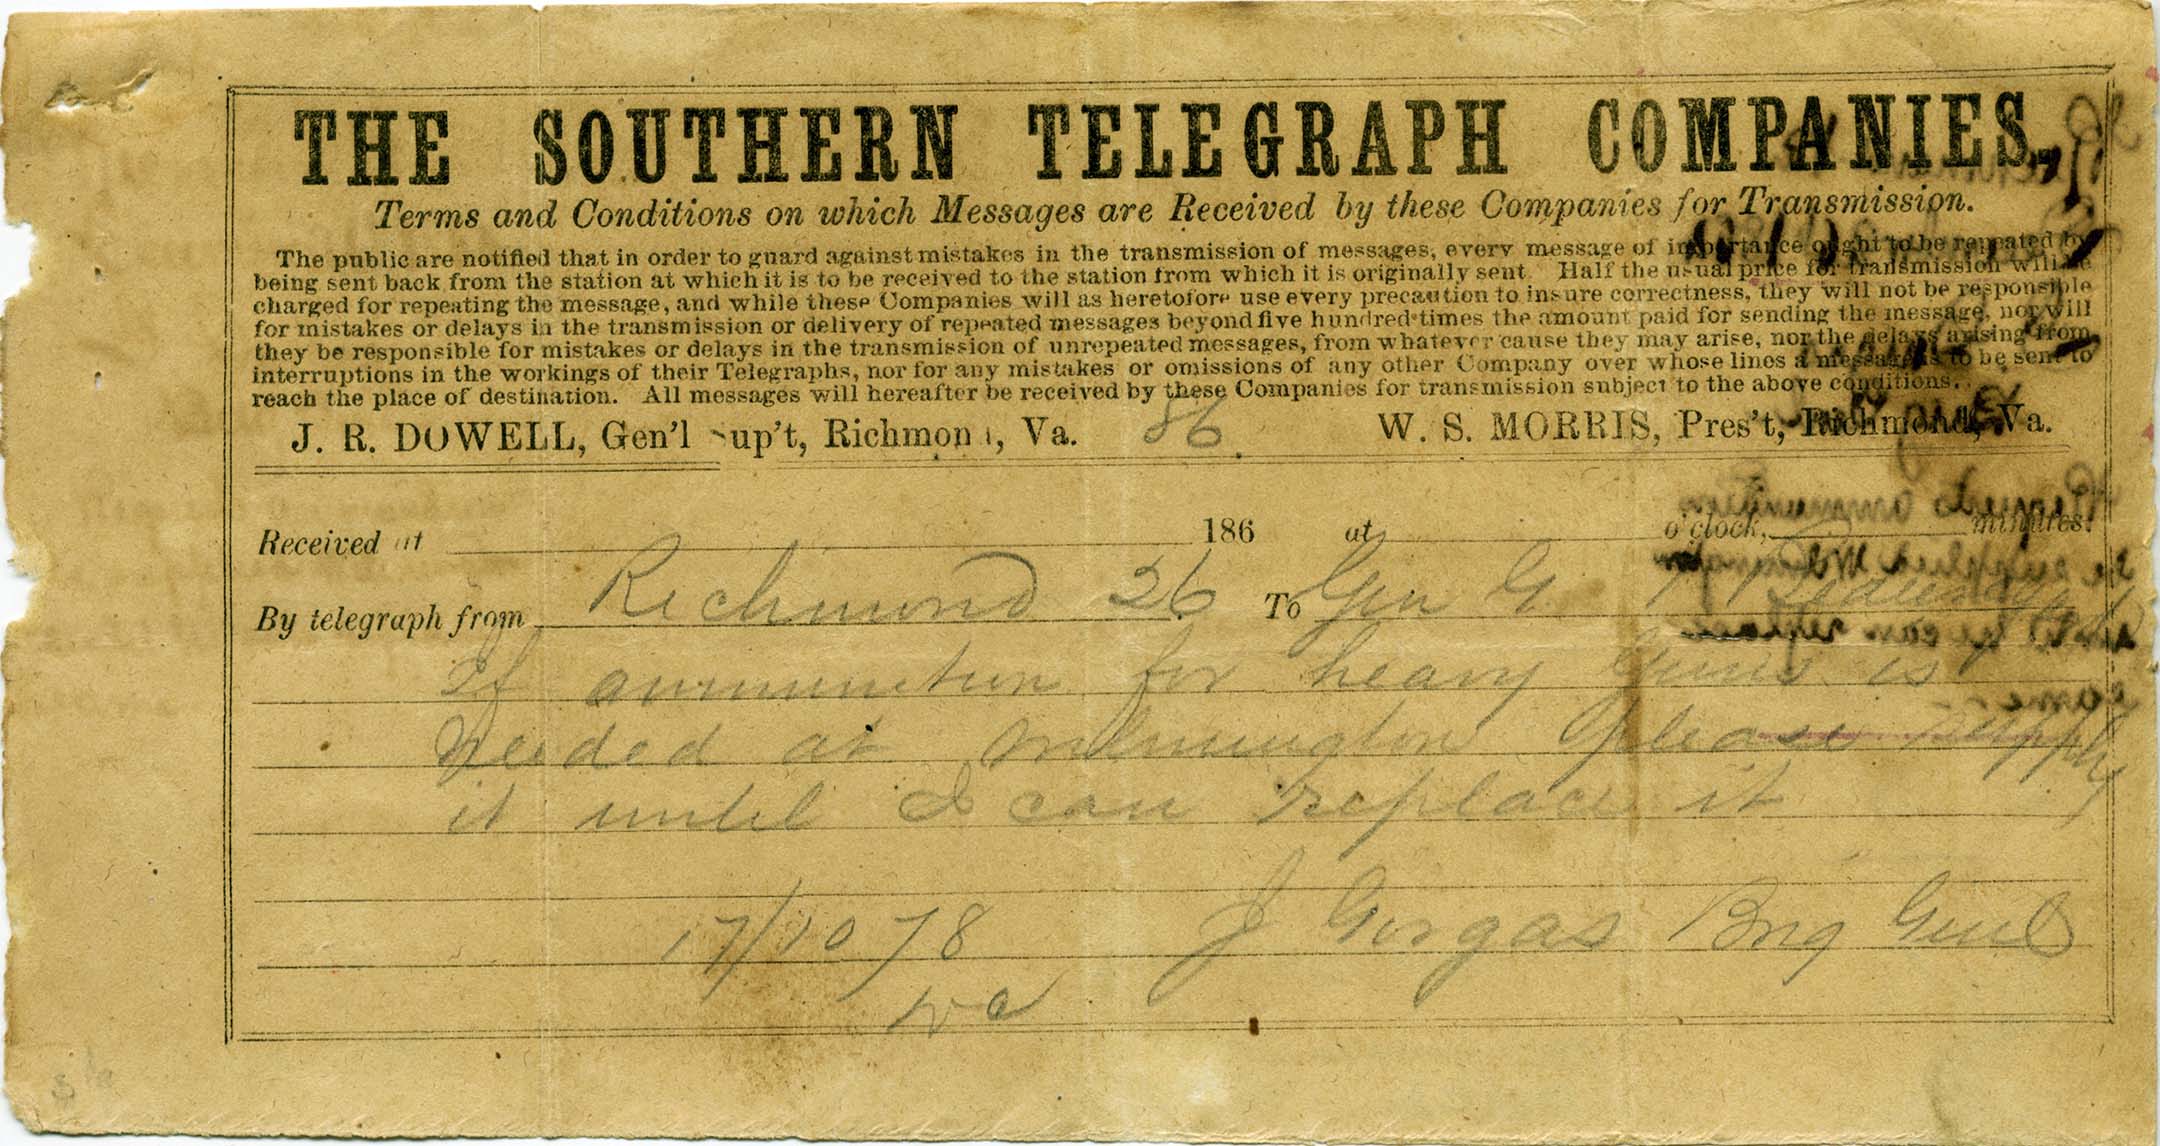 THE SOUTHERN TELEGRAPH COMPANIES.
Terms and Conditions on which Messages are Received by these Companies for Transmission.
The public are notified that in order to guard against mistakes in the transmission of messages, every message of importance ought to be repeated by
being sent back from the station at which it is to be received to the station from which it is originally sent. Half the usual price for transmission will be
charged for repeating the message, and while these Companies will as heretofore use every precaution to insure correctness, they will not be responsible
for mistakes or delays in the transmission or delivery of repeated messages beyond five hundred times the amount paid for sending the message, nor will
they be responsible for mistakes or delays in the transmission of unrepeated messages, from whatever cause they may arise, nor the delays arising from
interruptions in the workings of their Telegraphs, nor for any mistakes or omissions of any other Company over whose lines a message is to be sent to
reach the place of destination. All messages will hereafter be received by these Companies for transmission subject to the above conditions.
J. R. DOWELL, Gen'l Sup't, Richmond, Va. 86 W. S. MORRIS, Pres't, Richmond, Va.
Received at 186 at o'clock, minutes.
By telegraph from Richmond 26 To Gen G
If ammunition for heavy Guns is
Needed at Wilmington please supply
it until I can replace it
17/1078 J Gorgas Brig Genl